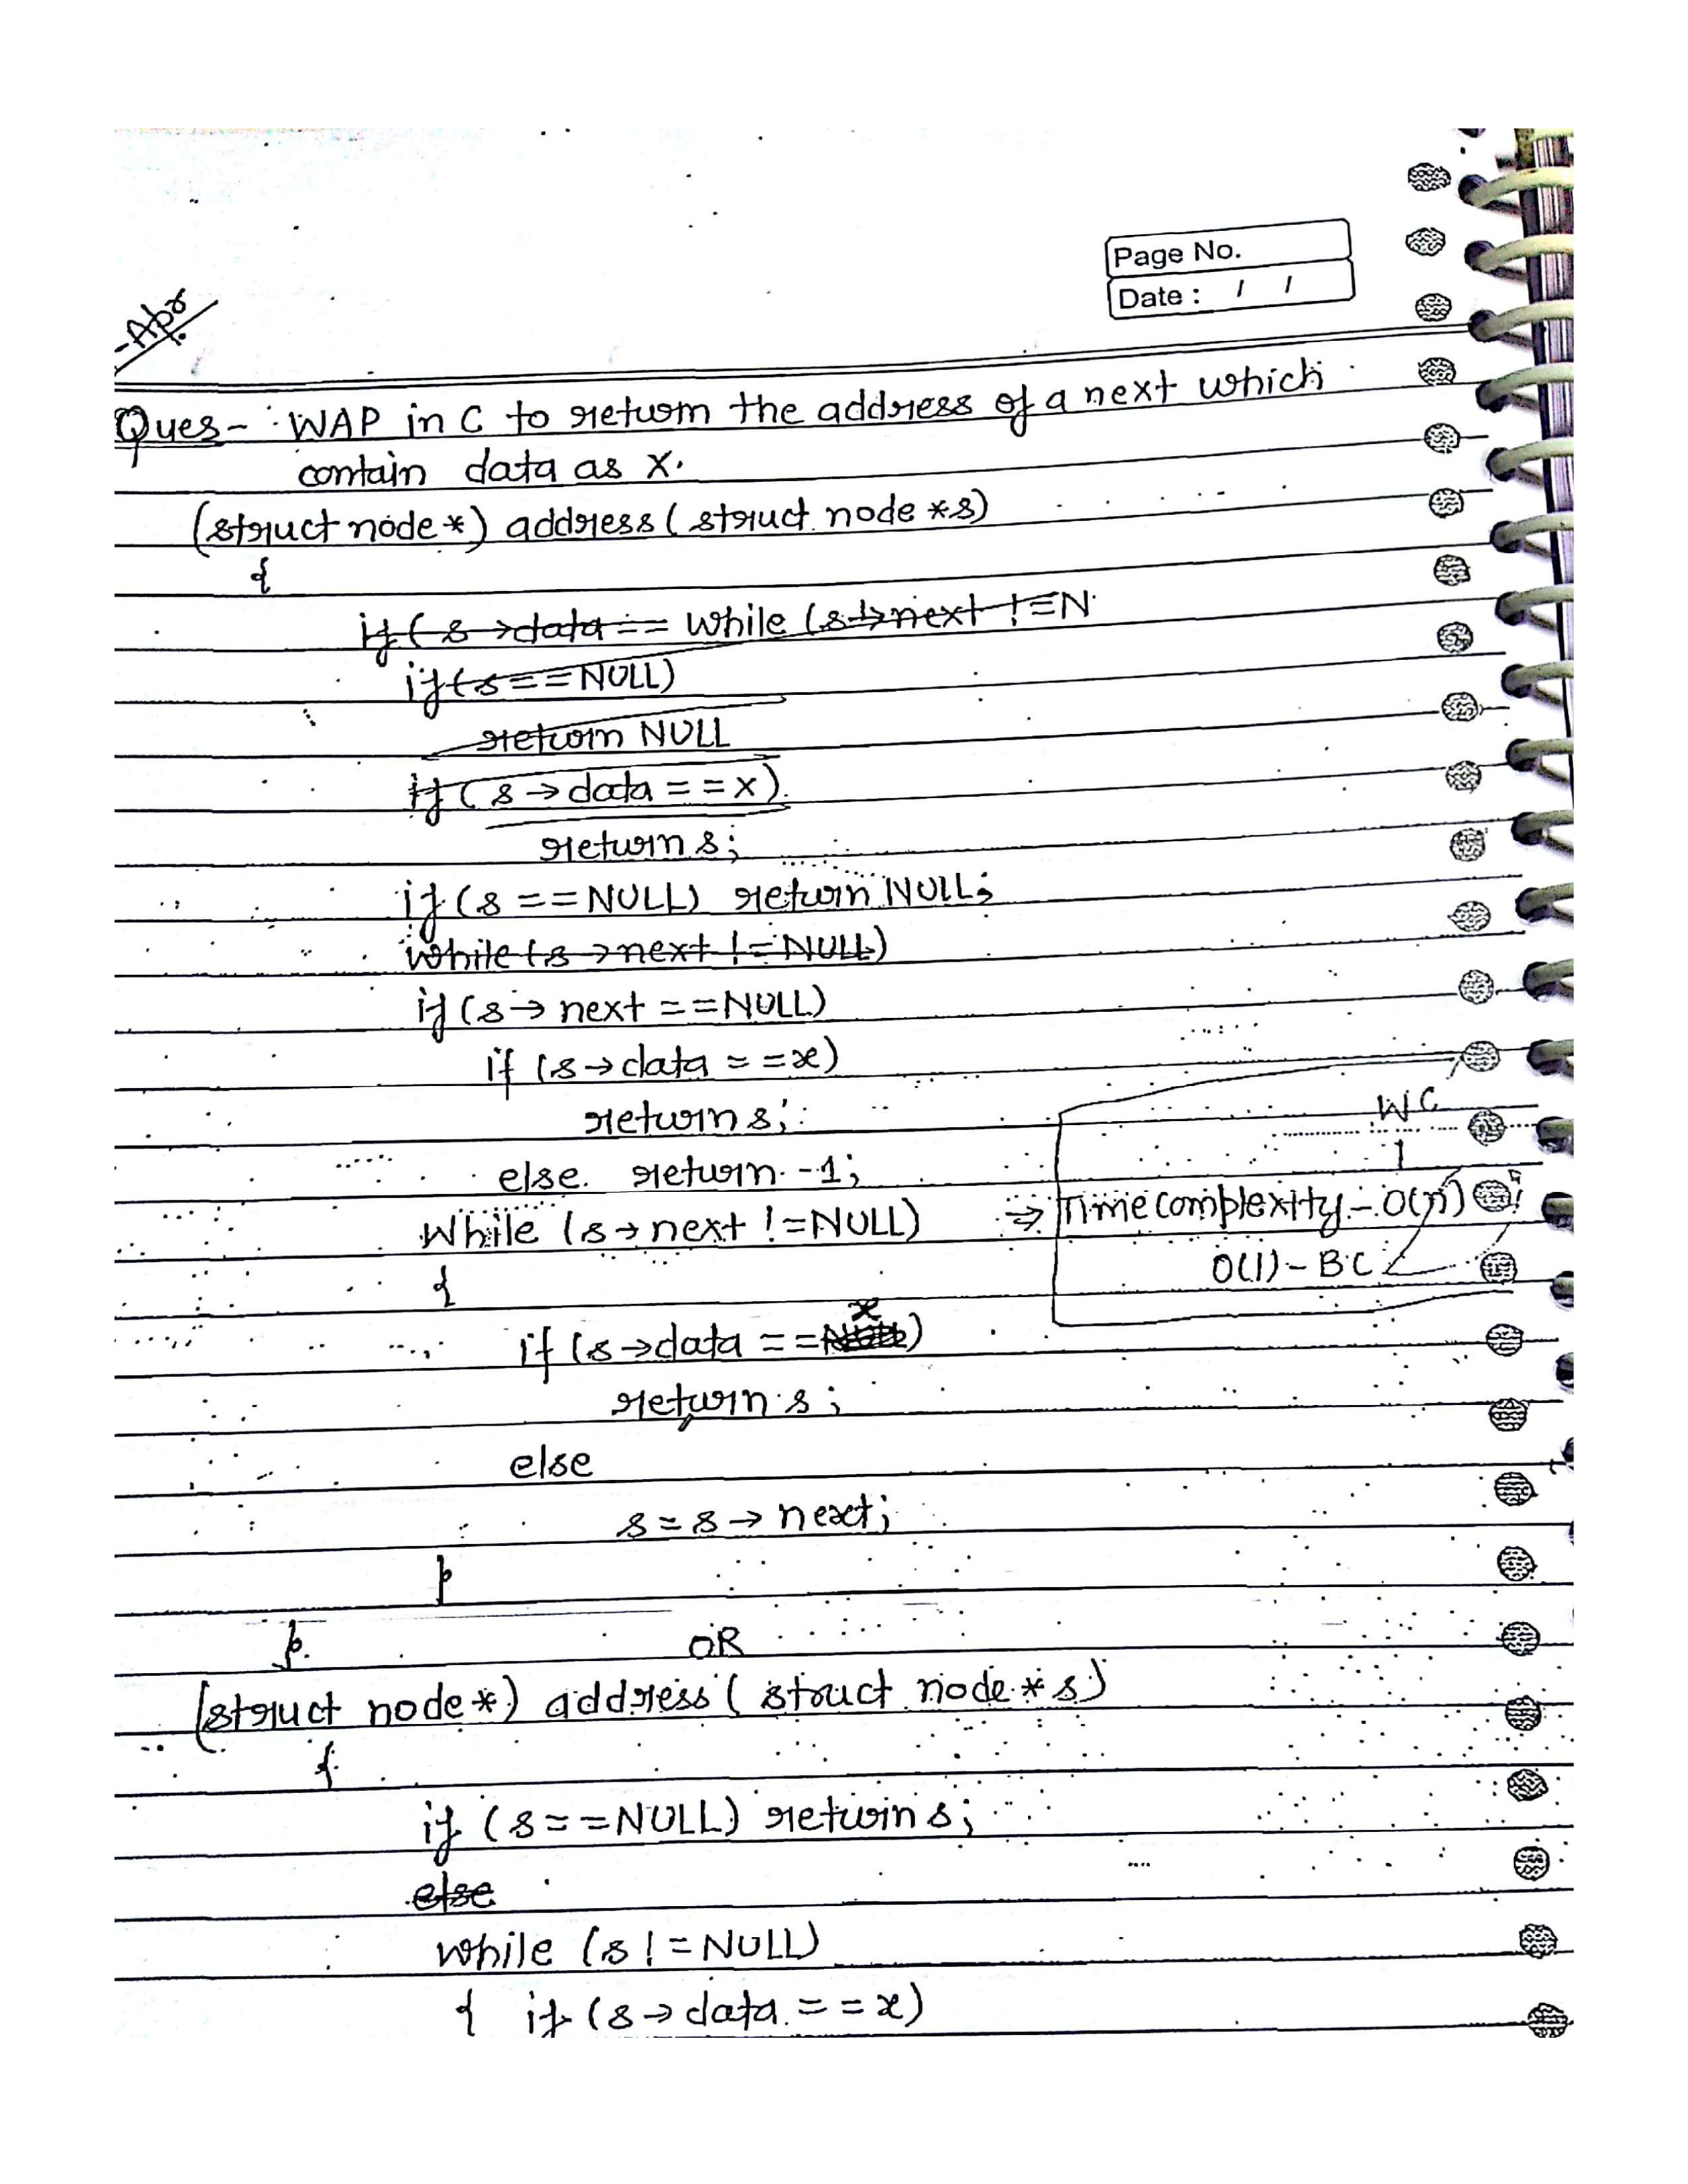 Page No.
Date : / /
-Apr
Ques- WAP in C to return the address of a next which
contain data as X.
(struct node*) address (struct node *s)
{
if (s→data == while (s→next != N
if (s == NULL)
return NULL
if (s → data == x)
return s;
if (s == NULL) return NULL;
while (s → next != NULL)
if (s → next == NULL)
if (s → data == x)
return s;
else return -1;
WC
While (s → next != NULL) ⇒ Time complexity - O(n)
O(1) - BC
{
if (s → data == x)
return s;
else
s = s → next;
}
}
OR
(struct node*) address (struct node *s)
{
if (s == NULL) return s;
else
while (s != NULL)
{ if (s → data == x)